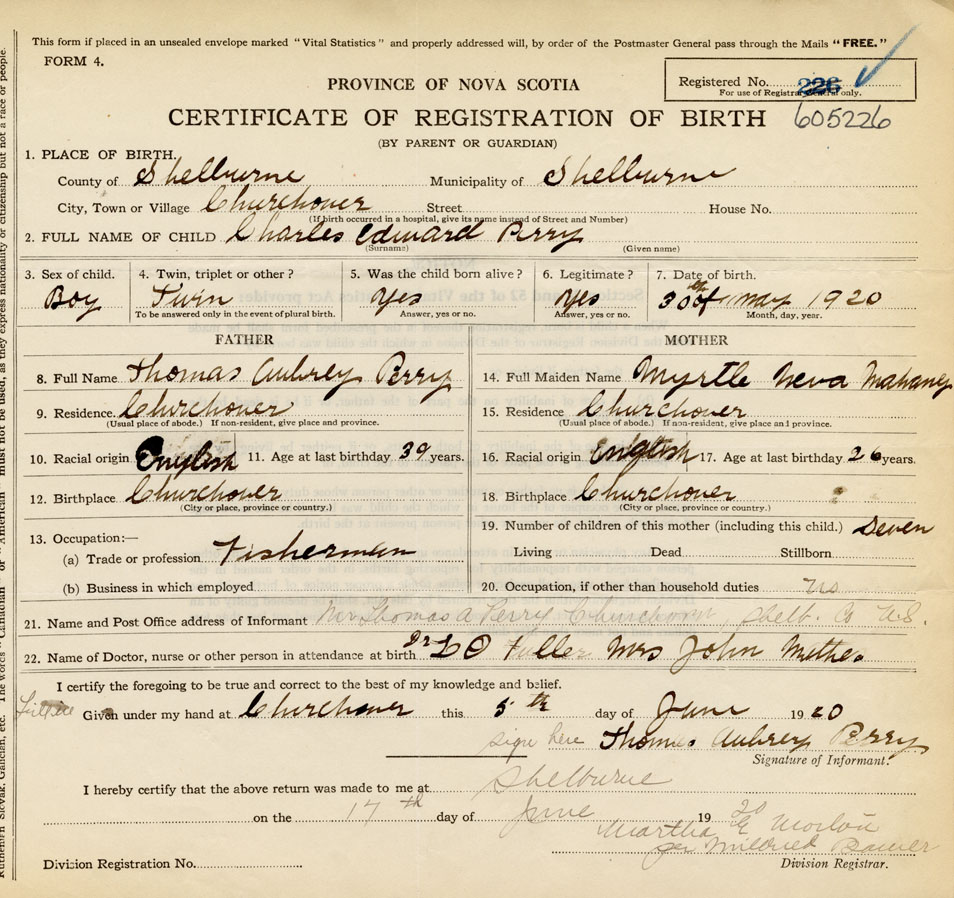 This form if placed in an unsealed envelope marked "Vital Statistics" and properly addressed will, by order of the Postmaster General pass through the Mails "FREE."
FORM 4.
Registered No. 226
For use of Registrar General only.
PROVINCE OF NOVA SCOTIA
CERTIFICATE OF REGISTRATION OF BIRTH 605226
(BY PARENT OR GUARDIAN)
1. PLACE OF BIRTH.
County of Shelburne Municipality of Shelburne
City, Town or Village Churchover Street House No.
(If birth occurred in a hospital, give its name instead of Street and Number)
2. FULL NAME OF CHILD Charles Edward Perry
(Surname) (Given name)
3. Sex of child. 4. Twin, triplet or other? 5. Was the child born alive? 6. Legitimate? 7. Date of birth.
Boy Twin Yes Yes 30th of May 1920
To be answered only in the event of plural birth. Answer, yes or no. Answer, yes or no. Month, day, year.
FATHER MOTHER
8. Full Name Thomas Aubrey Perry 14. Full Maiden Name Myrtle Neva Mahaney
9. Residence Churchover 15. Residence Churchover
(Usual place of abode.) If non-resident, give place and province. (Usual place of abode.) If non-resident, give place and province.
10. Racial origin English 11. Age at last birthday 39 years. 16. Racial origin English 17. Age at last birthday 26 years.
12. Birthplace Churchover 18. Birthplace Churchover
(City or place, province or country.) (City or place, province or country.)
13. Occupation:— 19. Number of children of this mother (including this child.) Seven
(a) Trade or profession Fisherman Living Dead Stillborn
(b) Business in which employed 20. Occupation, if other than household duties
21. Name and Post Office address of Informant Mr Thomas A Perry Churchover, Shelb. Co N.S.
22. Name of Doctor, nurse or other person in attendance at birth Dr L O Fuller Mrs John
I certify the foregoing to be true and correct to the best of my knowledge and belief.
Given under my hand at Churchover this 5th day of June 1920
sign here Thomas Aubrey Perry
Signature of Informant.
I hereby certify that the above return was made to me at Shelburne
on the 17th day of June 1920
Martha E Morton
per Mildred Bower
Division Registration No. Division Registrar.
must not be used, as they express nationality or citizenship but not a race or people.
Ruthenian Slovak, Galician, etc. The words "Canadian" or "American"